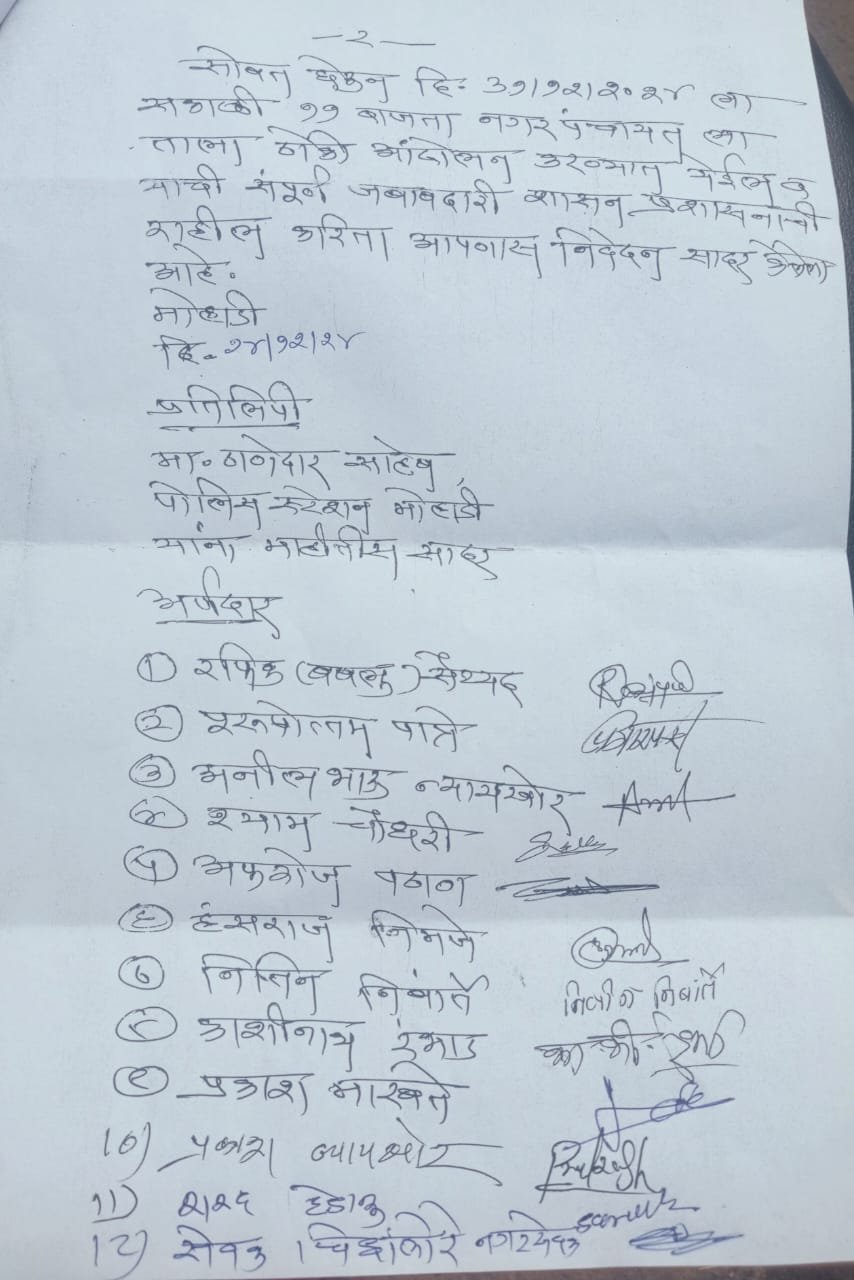 —२—
सोबत घेऊन दि. ३१/१२/२०२४ ला
सकाळी ११ वाजता नगरपंचायत ला
ताला ठोको आंदोलन करण्यात येईल व
याची संपूर्ण जबाबदारी शासन प्रशासनाची
राहील करिता आपणास निवेदन सादर केलेला
आहे.
मोहाडी
दि. २४/१२/२४
प्रतिलिपी
मा. ठाणेदार साहेब
पोलिस स्टेशन मोहाडी
यांना माहीतीस सादर
अर्जदार
① रफिक (बबलु) सैय्यद
② पुरूषोत्तम पात्रे
③ अनील भाऊ न्यायखोर
④ श्याम चौधरी
⑤ अफरोज पठाण
⑥ हंसराज निमजे
⑦ नितिन निंबार्ते नितीन निंबार्ते
⑧ काशीनाथ
⑨ प्रकाश मारबते
10) प्रकाश न्यायखोर Prakash
11) शरद
12) सेवक चिंधालोरे नगरसेवक